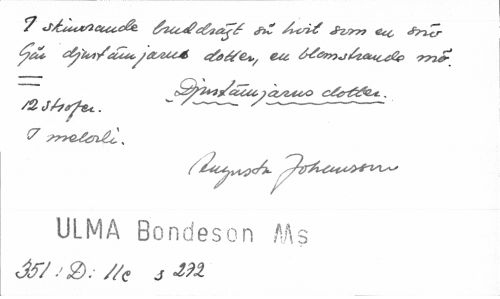 I skinrande bruddrägt så hvit som en snö
Går djustämjarns dotter, en blomstrande mö.
Djustämjarns dotter.
12 strofer.
I melodi.
Augusta Johansson
ULMA Bondeson Ms
351: D: 11c s 272